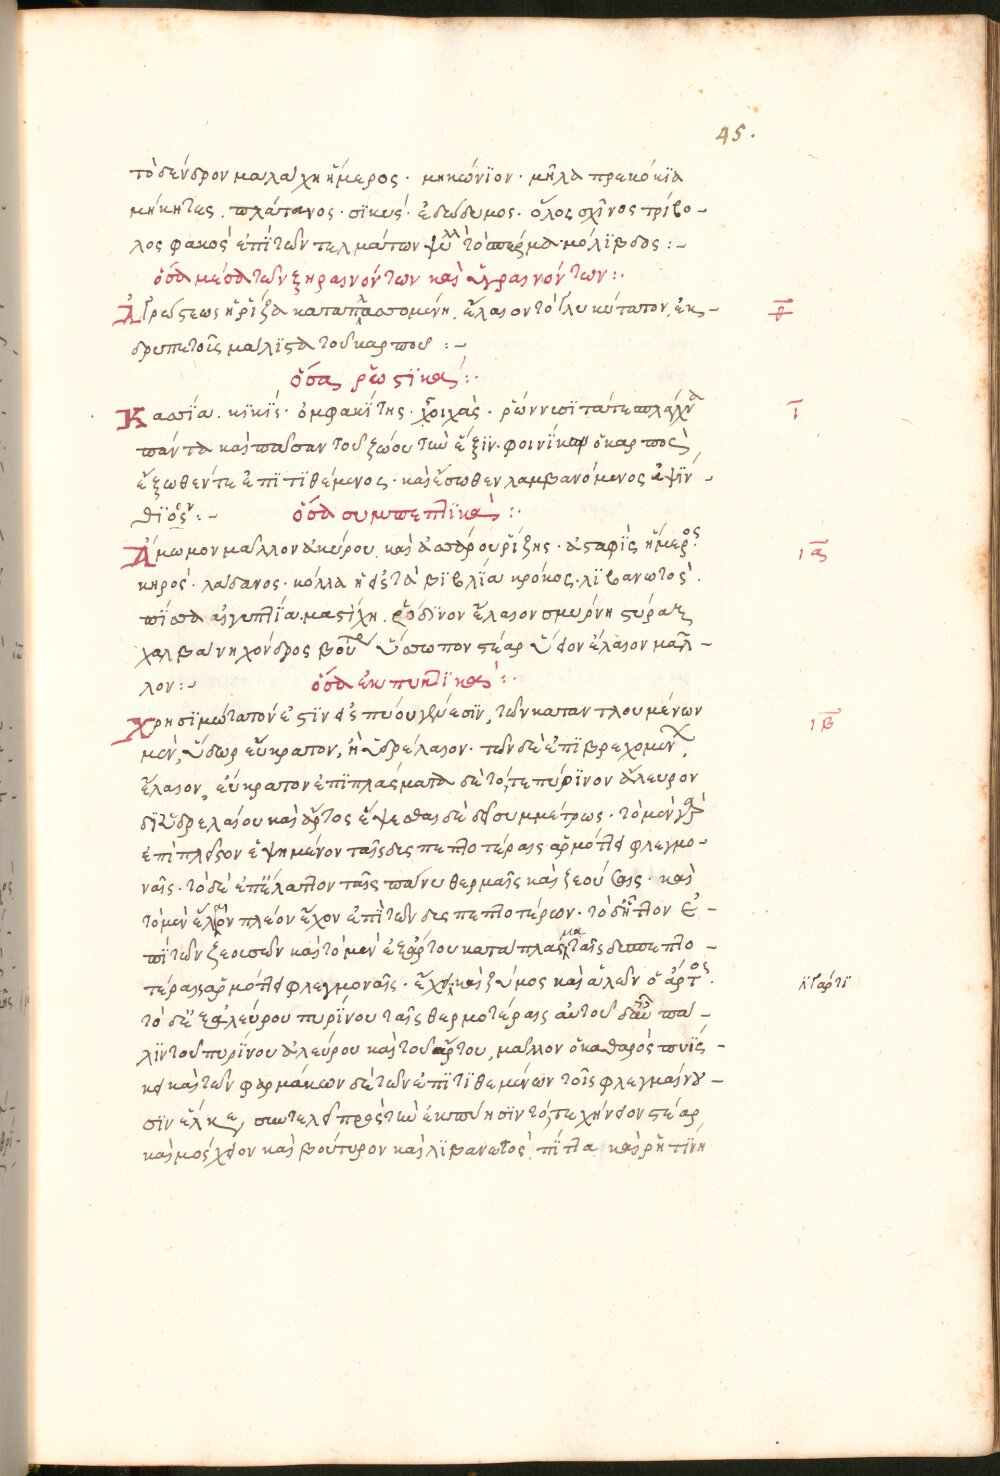 45.
τὸ δένδρον μαλάχη ἥμερος · μηκώνϊον · μῆλα πρεκόκϊα
μήκητες πλάτανος · σϊκυὸς ἐδώδυμος · ὅλος σχῖνος τρίβο-
λος φακὸς ἐπὶ τῶν τελμάτων ψύλλ τὸ σπέρμα · μόλϊβδος :-
ὅσα μέσα τῶν ξηραινόντων καὶ ὑγραινόντων :·
Ἀγρώστεως ἡ ῥίζα καταπλασσομένη. ἔλαιον τὸ γλυκύτατον, ἐκ-
δρυπετοῖς μάλϊστα τοῦ καρποῦ :-
ὅσα ῥωστϊκά :·
Κασσία. κϊκὶς · ὀμφακίτης · ῥώννυσϊ τά τε σπλάγχνα
πάντα καὶ πᾶσαν τοῦ ζώου τὴν ἕξϊν · φοινίκων ὁ καρπὸς
ἔξωθέν τε ἐπϊτϊθέμενος · καὶ ἔσωθεν λαμβανόμενος ἀψϊν-
θϊον :- ὅσα συμπεπτϊκά :·
Ἄμωμον μᾶλλον ἀκόρου καὶ ἀσάρου ῥίζης · ἀσταφὶς ἥμερος
κηρὸς · λάδανος · κόλλα ἡ εἰς τὰ βϊβλία κρόκος · λϊβανωτὸς.
πίσσα αἰγυπτία. μαστίχη. ῥόδϊνον ἔλαιον σμύρνη στύραξ
χαλβάνη χόνδρος βούτυρ ὕσσωπον στέαρ ὕειον ἔλαιον μᾶλ-
λον :- ὅσα ἐκπυητϊκά :·
Χρησϊμώτατον ἐστϊν εἰς πύου γένεσϊν, τῶν καταντλουμένων
μὲν, ὕδωρ εὔκρατον, ἢ ὑδρέλαιον · τῶν δὲ ἐπϊβρεχομένων
ἔλαιον, εὔκρατον ἐπϊπλάσματα δὲ τό, τε πύρϊνον ἄλευρον
δϊ ὑδρελαίου καὶ ἄρτος ἕψεσθαι δὲ δεῖ συμμέτρως · τὸ μὲν γὰρ
ἐπὶ πλεῖον ἑψημένον ταῖς δυσπεπτοτέραις ἁρμόττει φλεγμο-
ναῖς · τὸ δὲ ἐπ' ἔλαττον ταῖς πάνυ θερμαῖς καὶ ζεούσαις · καὶ
τὸ μὲν ἔλαιον πλέον ἔχον ἐπὶ τῶν δυσπεπτοτέρων · τὸ δ' ἧττον ἐ-
πὶ τῶν ζεουσῶν καὶ τὸ μὲν ἐξ ἄρτου κατάπλασμα ταῖς δυσπεπτο-
τέραις ἁρμόττει φλεγμοναῖς · ἔχει καὶ ζύμος καὶ ἁλῶν ὁ ἄρτος.
τὸ δὲ ἐξ ἀλεύρου πυρίνου ταῖς θερμοτέραις αὐτοῦ δ' αὖ πά-
λϊν τοῦ πυρίνου ἀλεύρου καὶ τοῦ ἄρτου, μᾶλλον ὁ καθαρὸς ποιϊεῖ-
κει καὶ τῶν φαρμάκων δὲ τῶν ἐπϊτϊθεμένων τοῖς φλεγμαίνου-
σϊν ἕλκε, συντελεῖ πρὸς τὴν ἐκπύησϊν τό, τε χήνειον στέαρ
καὶ μόσχειον καὶ βούτυρον καὶ λϊβανωτὸς, πίττα καὶ ῥητϊνη
θ
ι
ια
ιβ